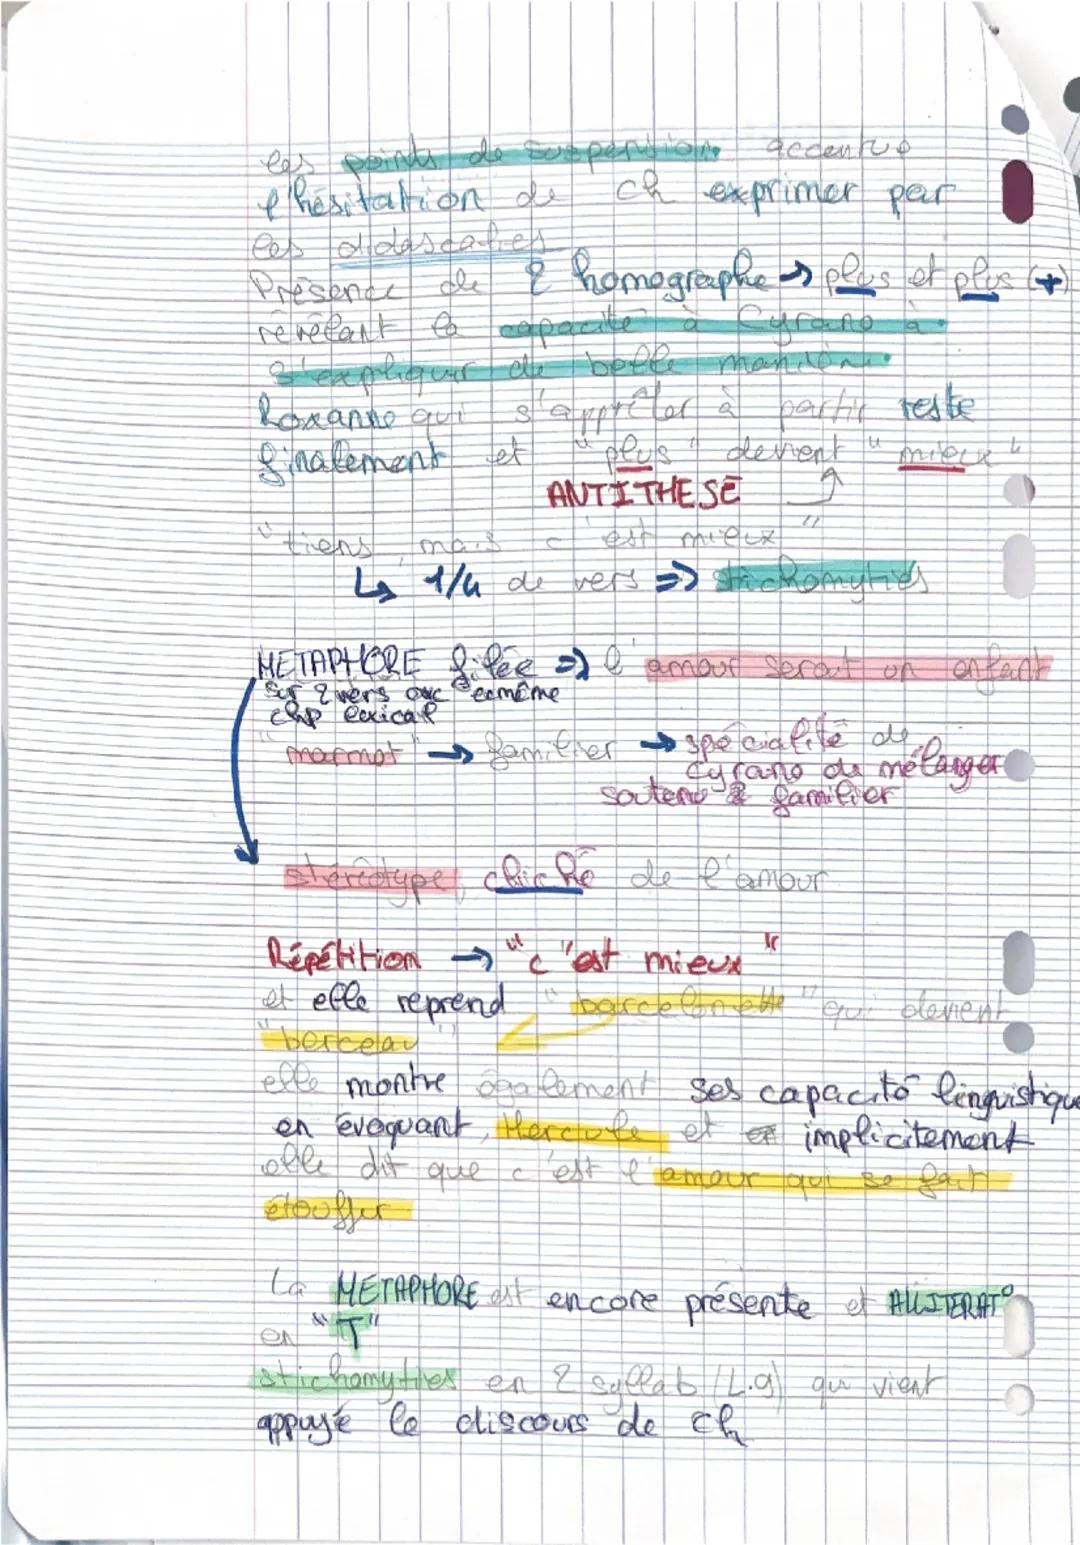 les points de suspension accentue
l'hésitation de ch exprimer par
les didascalies
Présence de 2 homographe → plus et plus (+)
révélant la capacité à Cyrano à
s'expliquer de belle manière
Roxanne qui s'apprêter à partir reste
finalement et "plus" devient "mieux"
ANTITHESE
"tiens, mais c'est mieux"
↳ 1/4 de vers => stichomyties
METAPHORE filée => l'amour serait un enfant
sur 2 vers avec le même
chp lexical
"marmot" → familier → spécialité de
Cyrano de mélanger
soutenu & familier
stéréotype, cliché de l'amour
Répétition → "c'est mieux"
et elle reprend "barcelonette" qui devient
"berceau"
elle montre également ses capacité linguistique
en évoquant Hercule et implicitement
elle dit que c'est l'amour qui se fait
étouffer
La METAPHORE est encore présente et ALLITERAT°
en "T"
stichomyties en 2 syllab (L.9) qui vient
appuyé le discours de ch